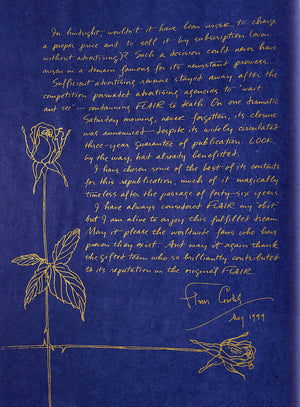 In hindsight, wouldn't it have been wiser to charge
a proper price and to sell it by subscription (even
without advertising)? Such a decision could never have
arisen in a domain famous for its newsstand prowess...
Sufficient advertising revenue stayed away after the
competition persuaded advertising agencies to "wait
and see" — condemning FLAIR to death. On one dramatic
Saturday morning, never forgotten, its closure
was announced — despite its widely circulated
three-year guarantee of publication. LOOK,
by the way, had already benefitted.
I have chosen some of the best of its contents
for this republication, much of it magically
timeless after the passage of forty-six years.
I have always considered FLAIR my 'obit',
but I am alive to enjoy this fulfilled dream.
May it please the worldwide fans who have
proven they exist. And may it again thank
the gifted team who so brilliantly contributed
to its reputation in the original FLAIR.
Fleur Cowles
May 1999